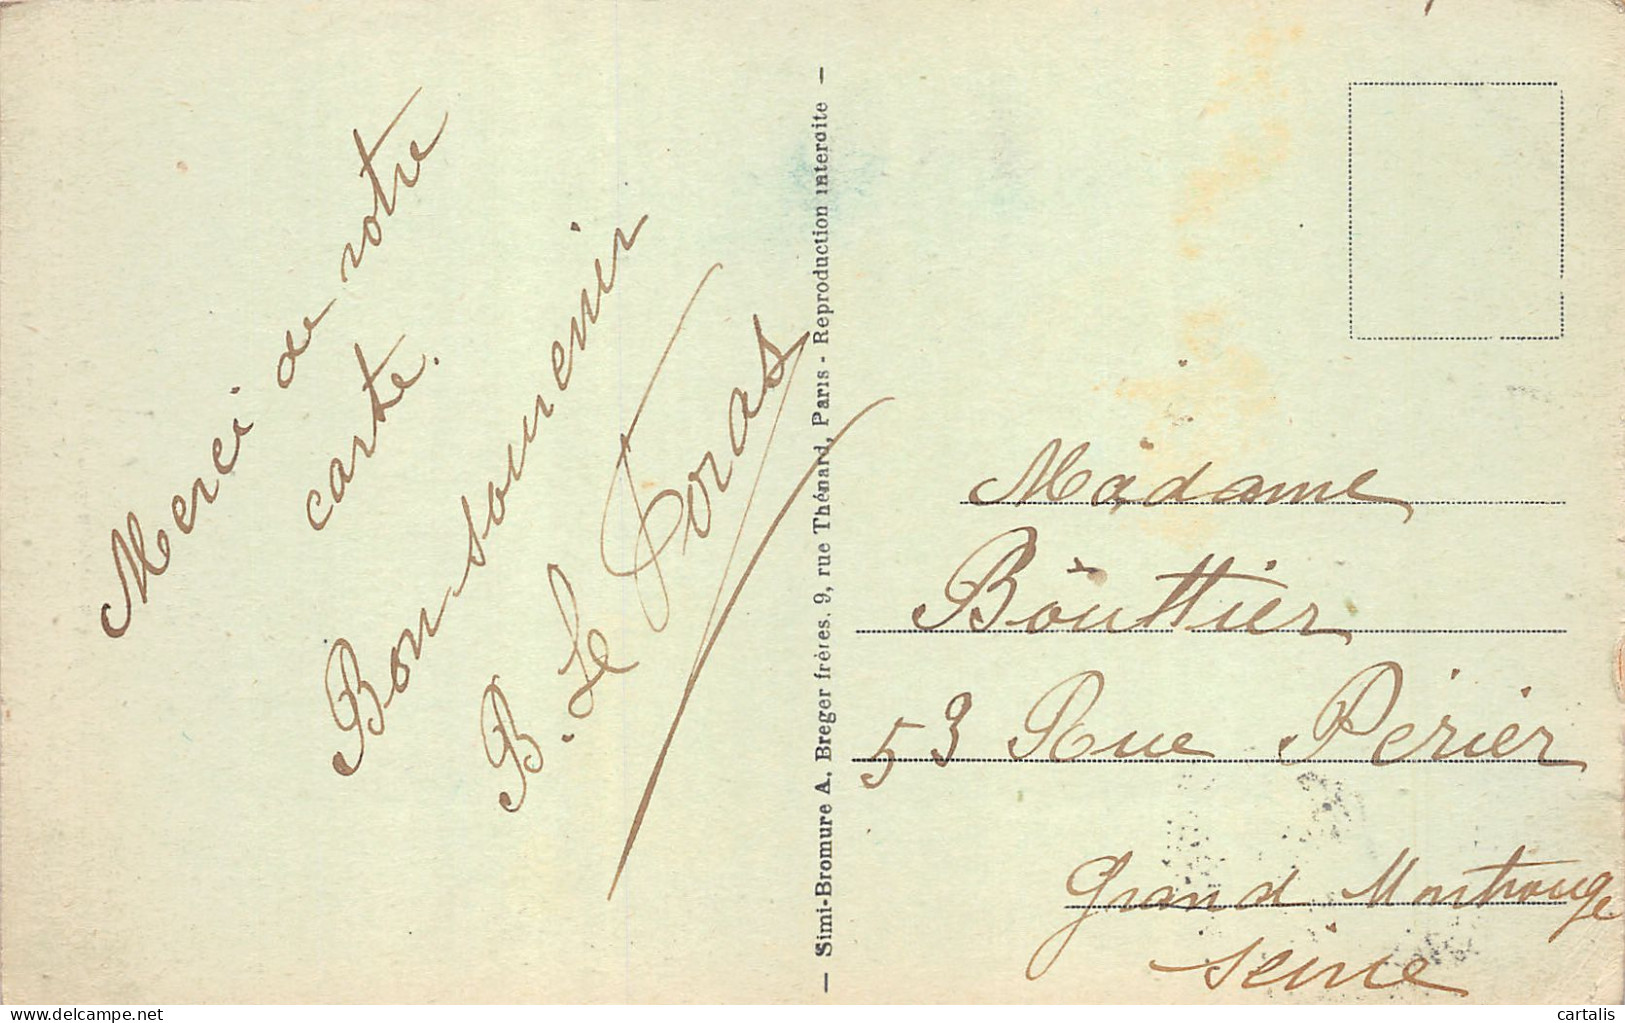 Merci de votre
carte.
Bon souvenir
B. Le Poras
— Simi-Bromure A. Breger frères. 9, rue Thénard, Paris - Reproduction interdite —
Madame
Bouttier
53 Rue Périer
Grand Montrouge
Seine
www.delcampe.net
cartalis